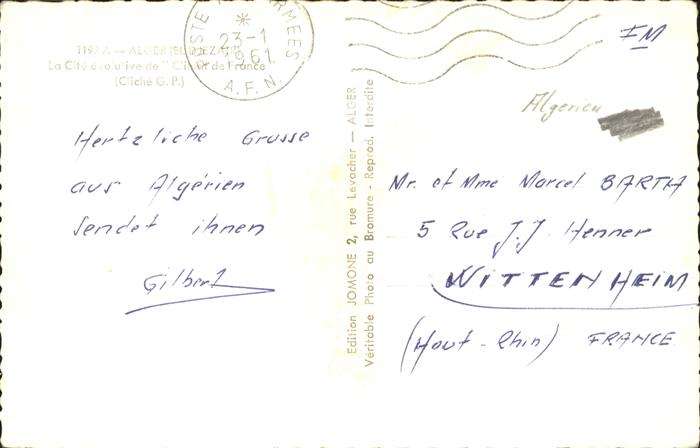 1197 A — ALGER (EL DJEZAIR)
La Cité évolutive de " Climat de France
(Cliché G. P.)
POSTE AUX ARMEES
*
23-1
1961
A. F. N.
FM
Algerien
Hertzliche Grusse
aus Algérien
sendet ihnen
Gilbert
Edition JOMONE 2, rue Levacher — ALGER
Véritable Photo au Bromure - Reprod. Interdite
Mr. et Mme Marcel BARTH
5 Rue J.J. Henner
WITTENHEIM
(Haut-Rhin) FRANCE